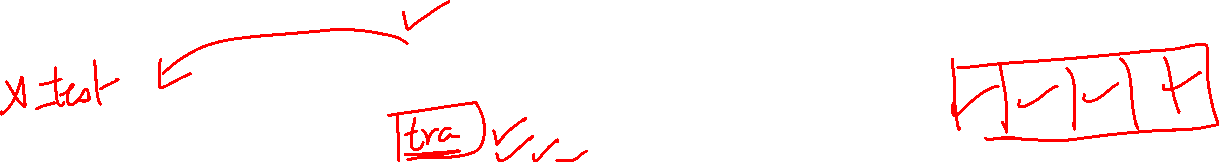 x_test
tra